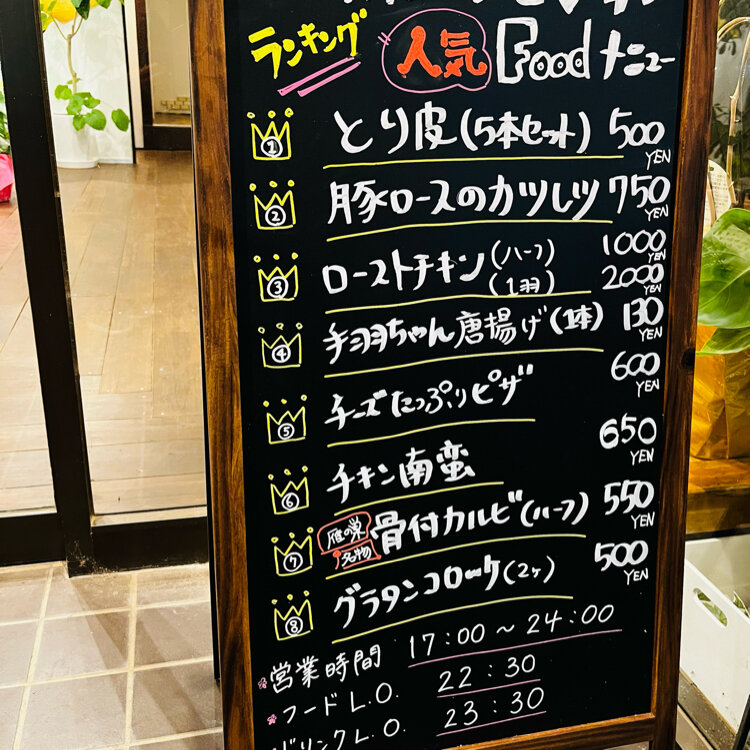 ランキング 人気 Foodメニュー
① とり皮(5本セット) 500 YEN
② 豚ロースのカツレツ 750 YEN
③ ローストチキン(ハーフ) 1000 YEN
(1羽) 2000 YEN
④ 手羽ちゃん唐揚げ(1本) 130 YEN
⑤ チーズたっぷりピザ 600 YEN
⑥ チキン南蛮 650 YEN
⑦ 雁の巣名物 骨付カルビ(ハーフ) 550 YEN
⑧ グラタンコロッケ(2ヶ) 500 YEN
営業時間 17:00~24:00
フードL.O. 22:30
ドリンクL.O. 23:30